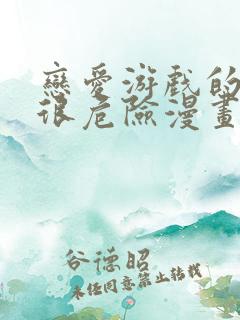 戀愛游戲的
很危險漫畫
谷德昭
未经同意禁止转载